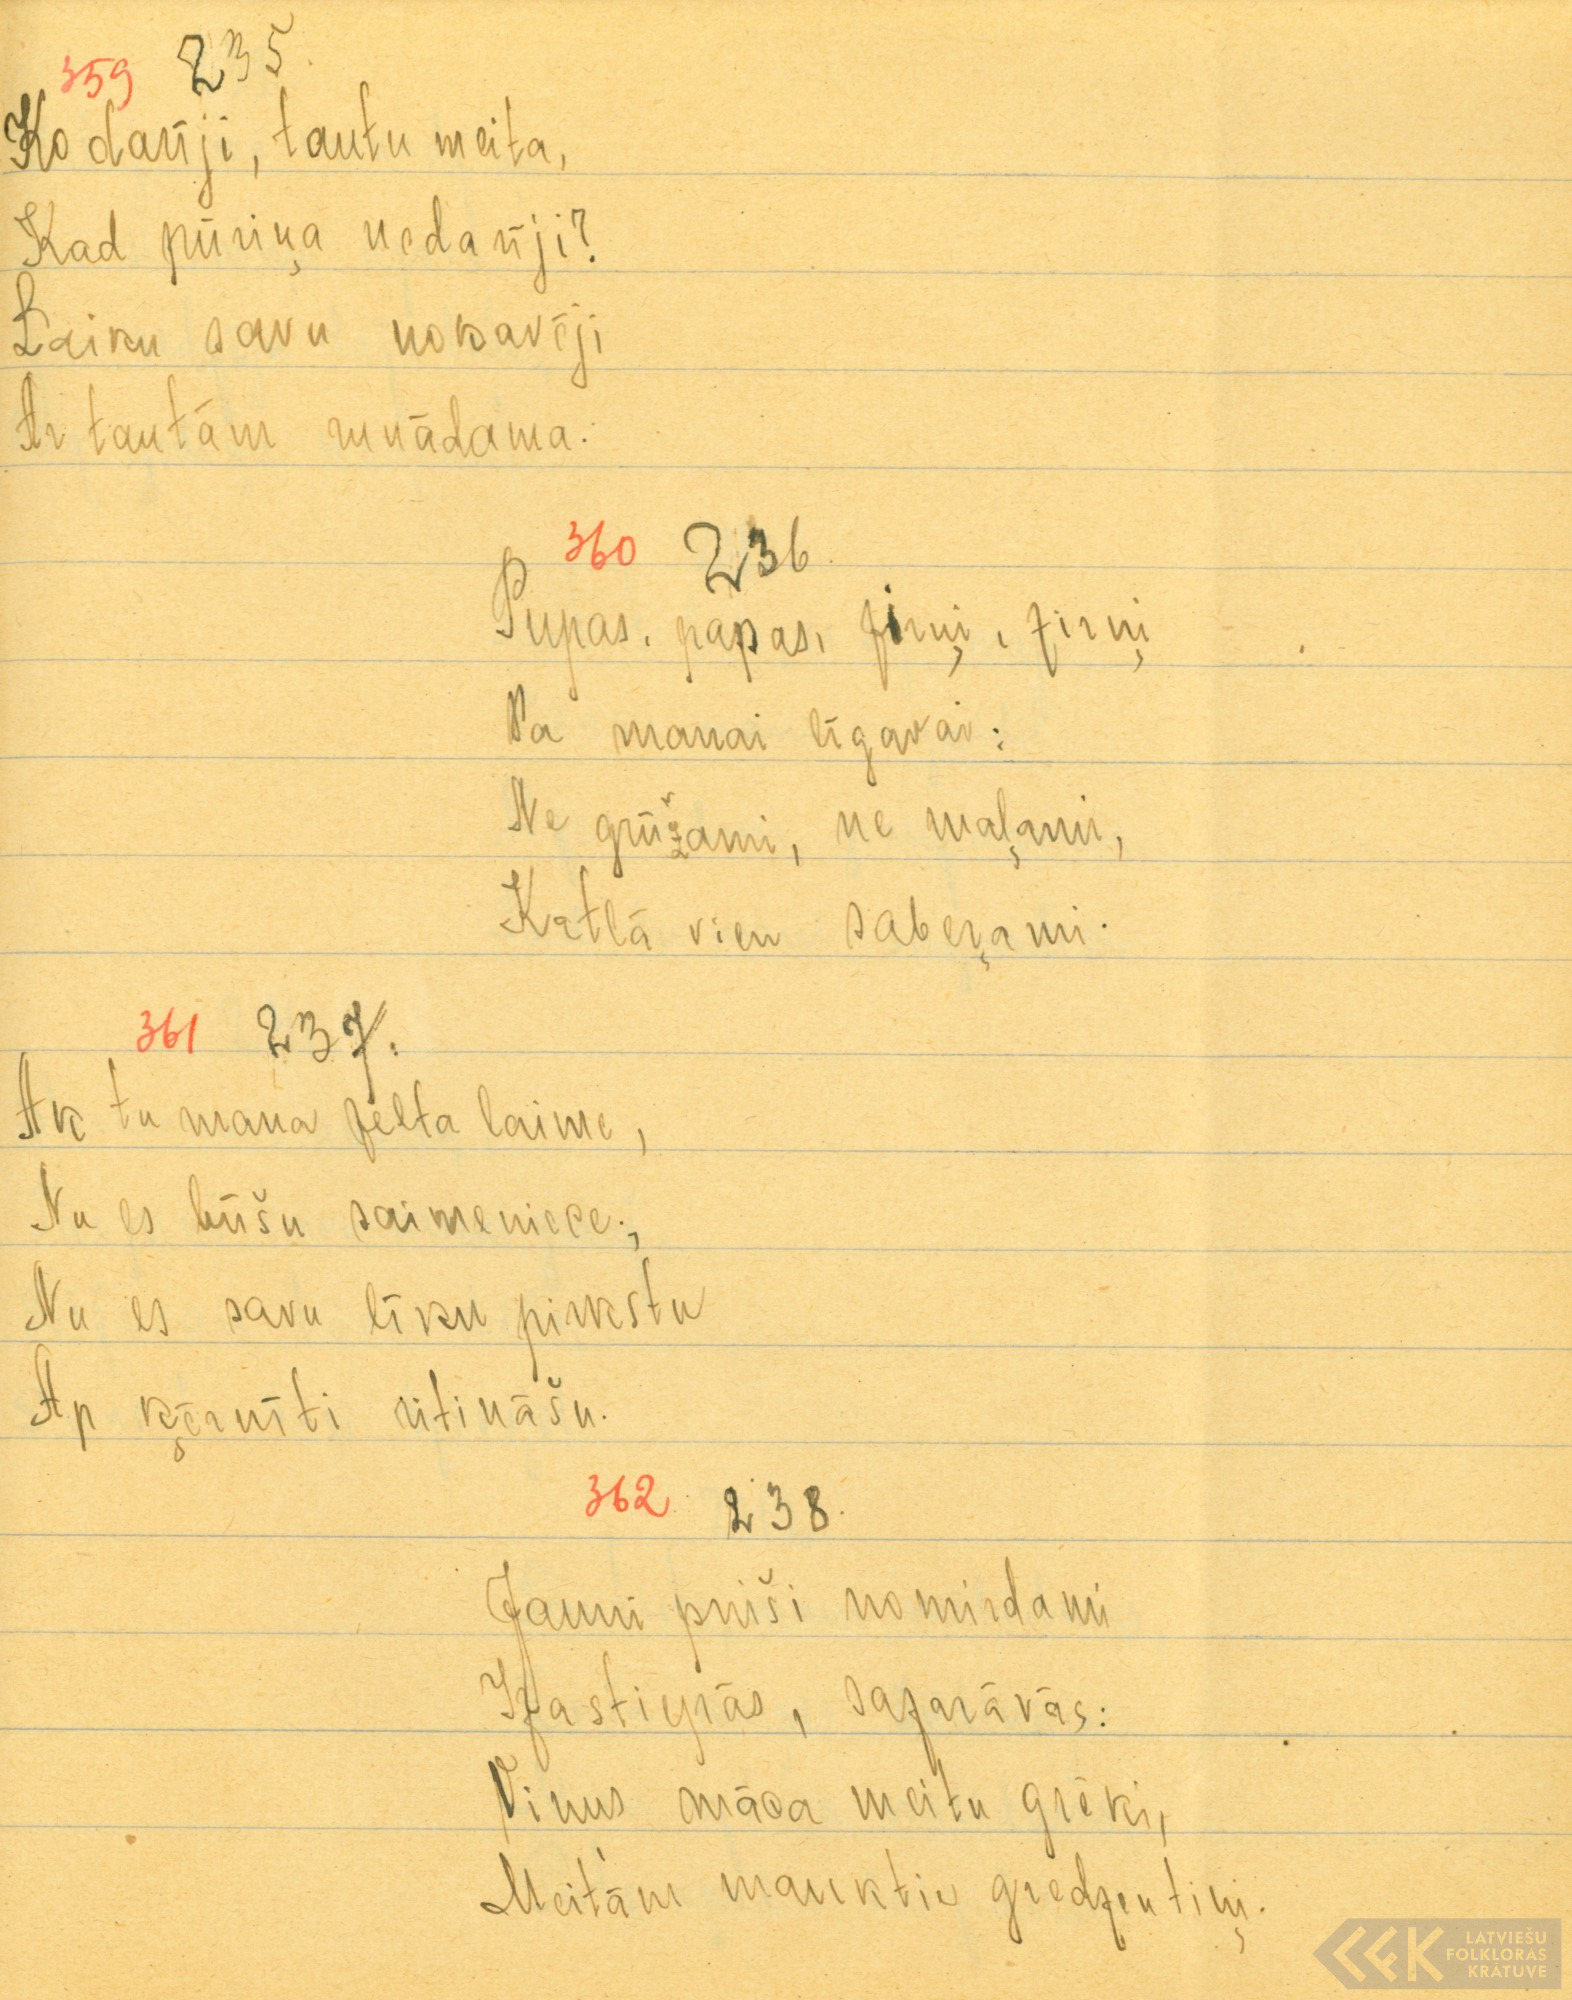 359 235.
Ko darīji, tautu meita,
Kad pūriņa nedarīji?
Laiku savu nokavēji
Ar tautām runādama.
360 236.
Pupas, pupas, zirņi, zirņi
Pa manai līgavai:
Ne grūžami, ne maļami,
Katlā vien saberami.
361 237.
Ak tu mana zelta laime,
Nu es būšu saimeniece;
Nu es savu līku pirkstu
Ap ķērnīti ritināšu.
362 238.
Jauni puiši nomirdami
Izastiepās, sazarāvās:
Viņus māca meitu grēki,
Meitām mauktie gredzentiņi.
LATVIEŠU
FOLKLORAS
KRĀTUVE